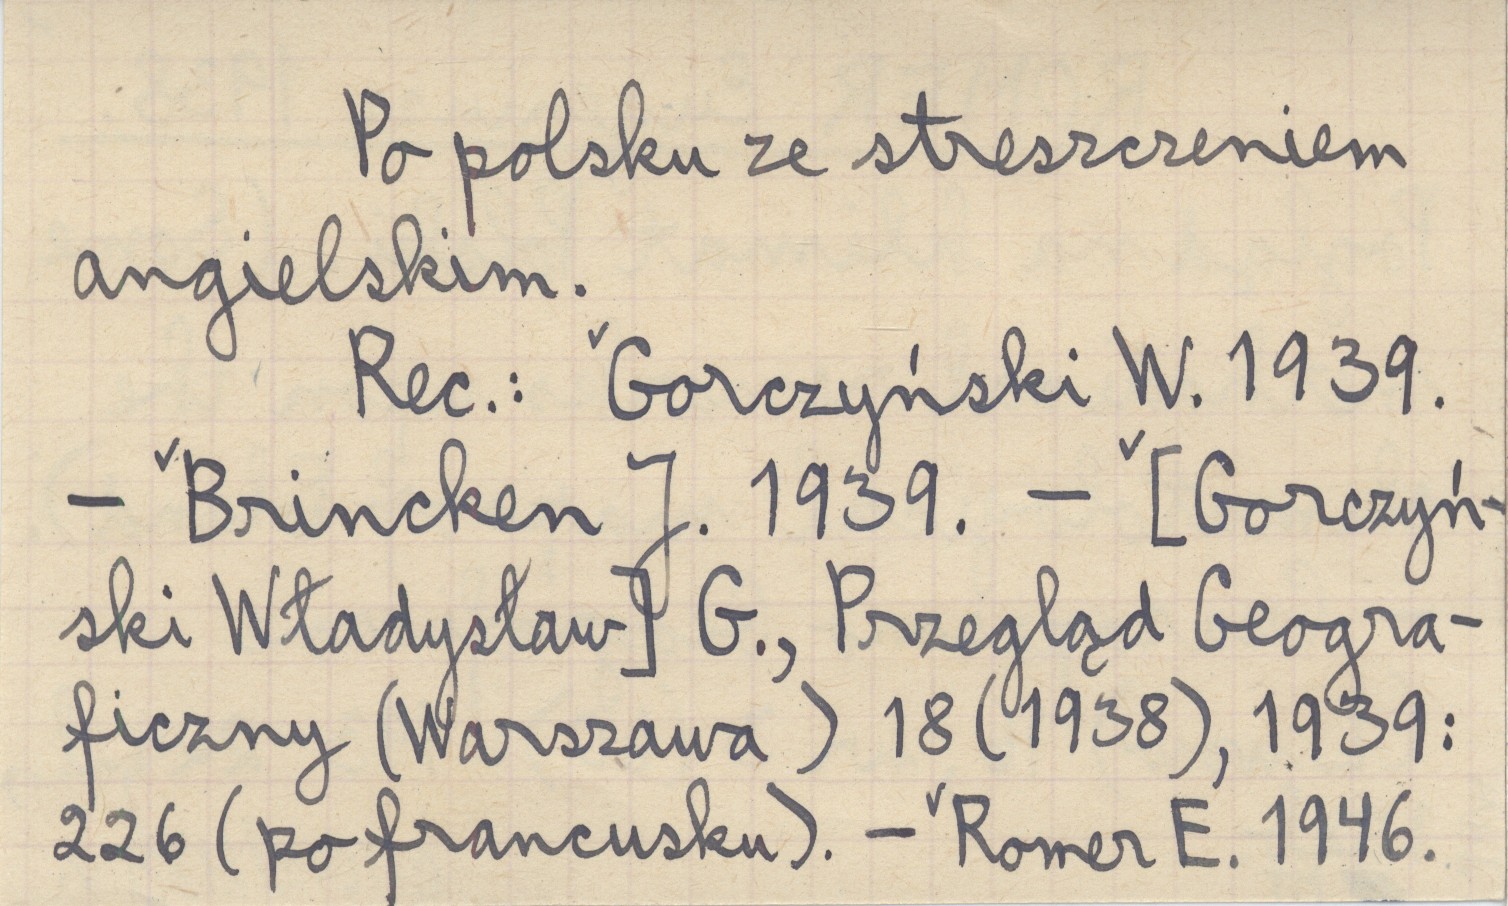 Po polsku ze streszczeniem
angielskim.
Rec.: ˇGorczyński W. 1939.
– ˇBrincken J. 1939. – ˇ[Gorczyń-
ski Władysław] G., Przegląd Geogra-
ficzny (Warszawa) 18(1938), 1939:
226 (po francusku). – ˇRomer E. 1946.